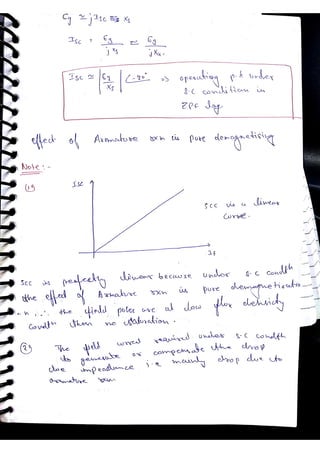 Eg ≃ j Isc Xs
Isc = Eg / jXs ≃ Eg / jXs
Isc ≃ |Eg / Xs| ∠-90° ⇒ operating p.f under
s.c condition is
ZPF lag.
effect of Armature rxn is pure demagnetising
Note :-
(1)
Isc
scc is a linear
curve.
If
scc is perfectly linear because under s.c condth
the effect of Armature rxn is pure demagnetisatio
-n ∴ the field poles are at low flux density
condth then no saturation.
(2)
The field required under s.c condth
to generate or compensate the drop
due impedance i.e mainly drop due to
armature rxn